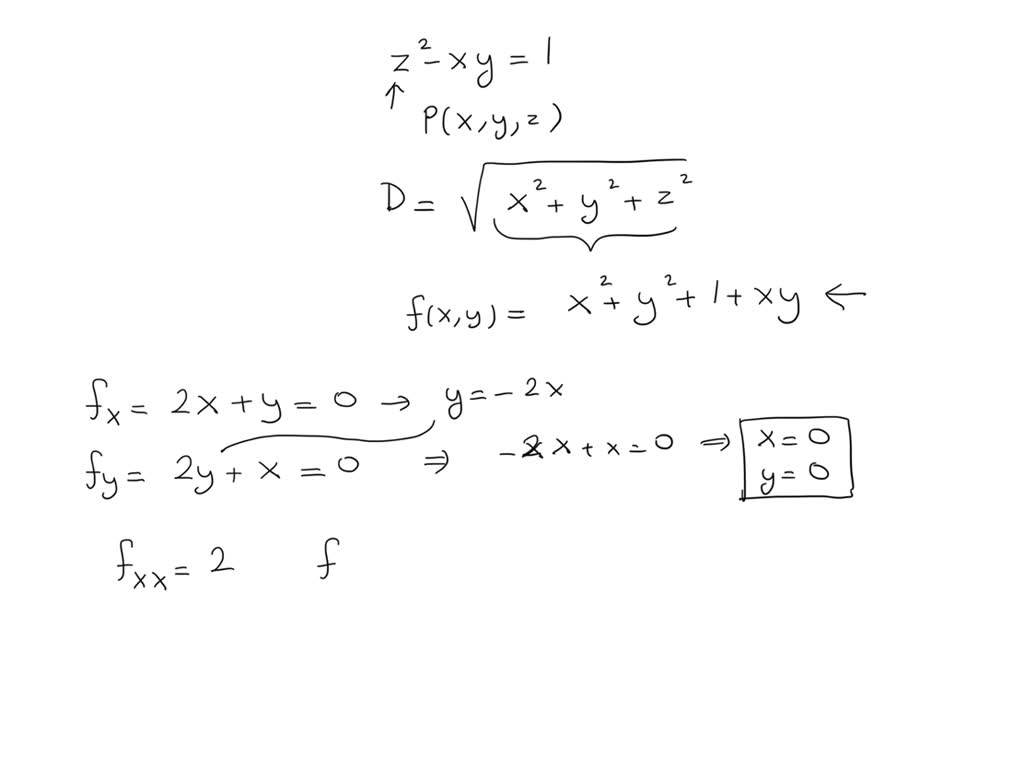 z² - xy = 1
↑
P(x, y, z)
D = √(x² + y² + z²)
f(x, y) = x² + y² + 1 + xy ←
f_x = 2x + y = 0 → y = - 2x
f_y = 2y + x = 0 ⇒ - x + x = 0 ⇒ x = 0
y = 0
f_xx = 2 f